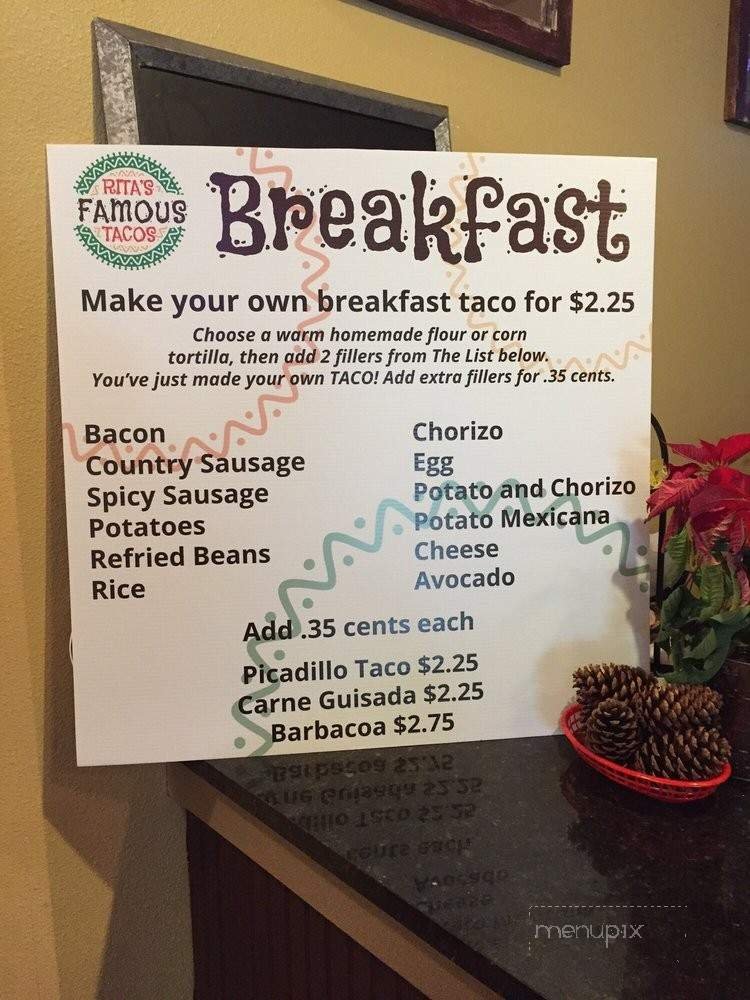 RITA'S
FAMOUS
TACOS
Breakfast
Make your own breakfast taco for $2.25
Choose a warm homemade flour or corn
tortilla, then add 2 fillers from The List below.
You've just made your own TACO! Add extra fillers for .35 cents.
Bacon
Country Sausage
Spicy Sausage
Potatoes
Refried Beans
Rice
Chorizo
Egg
Potato and Chorizo
Potato Mexicana
Cheese
Avocado
Add .35 cents each
Picadillo Taco $2.25
Carne Guisada $2.25
Barbacoa $2.75
menupix